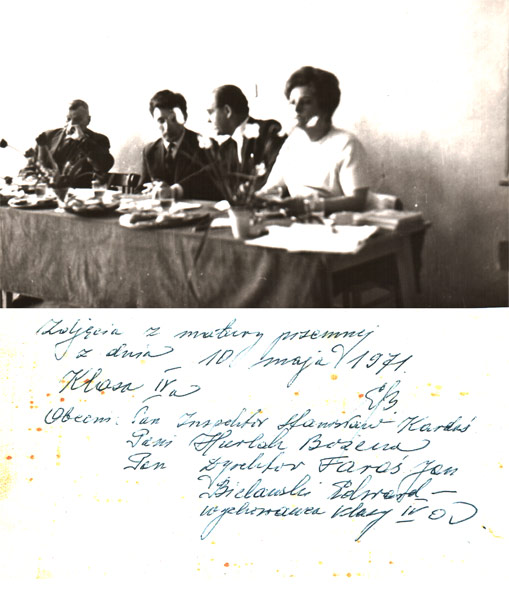 Zdjęcia z matury pisemnej
z dnia 10. maja 1971.
Klasa IVa
EB
Obecni: Pan Inspektor Stanisław Kardaś
Pani Hurlak Bożena
Pan Dyrektor Faras Jan
Bielawski Edward –
wychowawca klasy IV